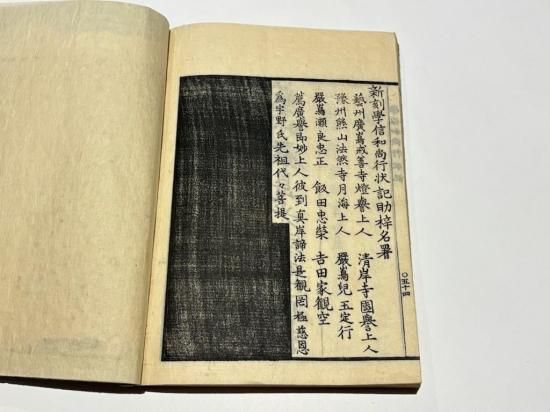 新刻學信和尚行状記助梓名署
藝州廣嶌戒善寺燈譽上人　清岸寺圓譽上人
豫州熊山法然寺月海上人　嚴嶌兒玉定行
嚴嶌瀬良忠正　飯田忠榮　吉田家觀空
薦廣譽即妙上人彼到真岸諦法是観罔極慈恩
為宇野氏先祖代々菩提
○五十四